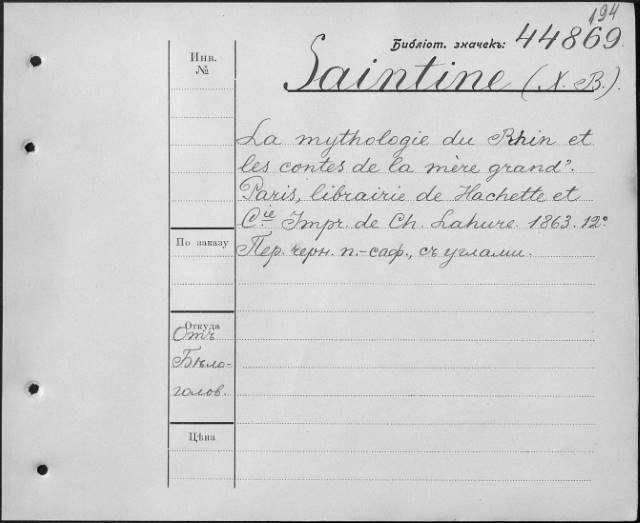 194
Библіот. значекъ: 44869
Инв.
№
Saintine (X. B.).
La mythologie du Rhin et
les contes de la mère grand'.
Paris, librairie de Hachette et
Cie Impr. de Ch. Lahure. 1863. 12°
По заказу
Пер. черн. п.-саф., съ углами.
Откуда
Отъ
Бѣло-
голов.
Цѣна